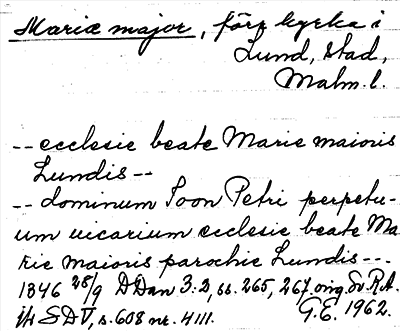 Mariæ major, förr kyrka i
Lund, stad,
Malm. l.
-- ecclesie beate Marie maioris
Lundis --
-- dominum Joon Petri perpetu-
um uicarium ecclesie beate Ma
rie maioris parochie Lundis ---
1346 28/9 DDan 3:2, ss. 265, 267, orig. Sv. R.A.
jfr SD V, s. 608 nr. 4111. G.E. 1962.